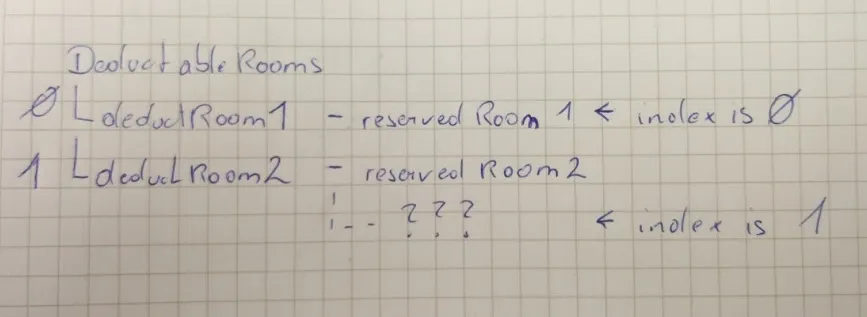 DeductableRooms
0 deductRoom1 - reserved Room 1 ← index is 0
1 deductRoom2 - reserved Room2
-- ??? ← index is 1